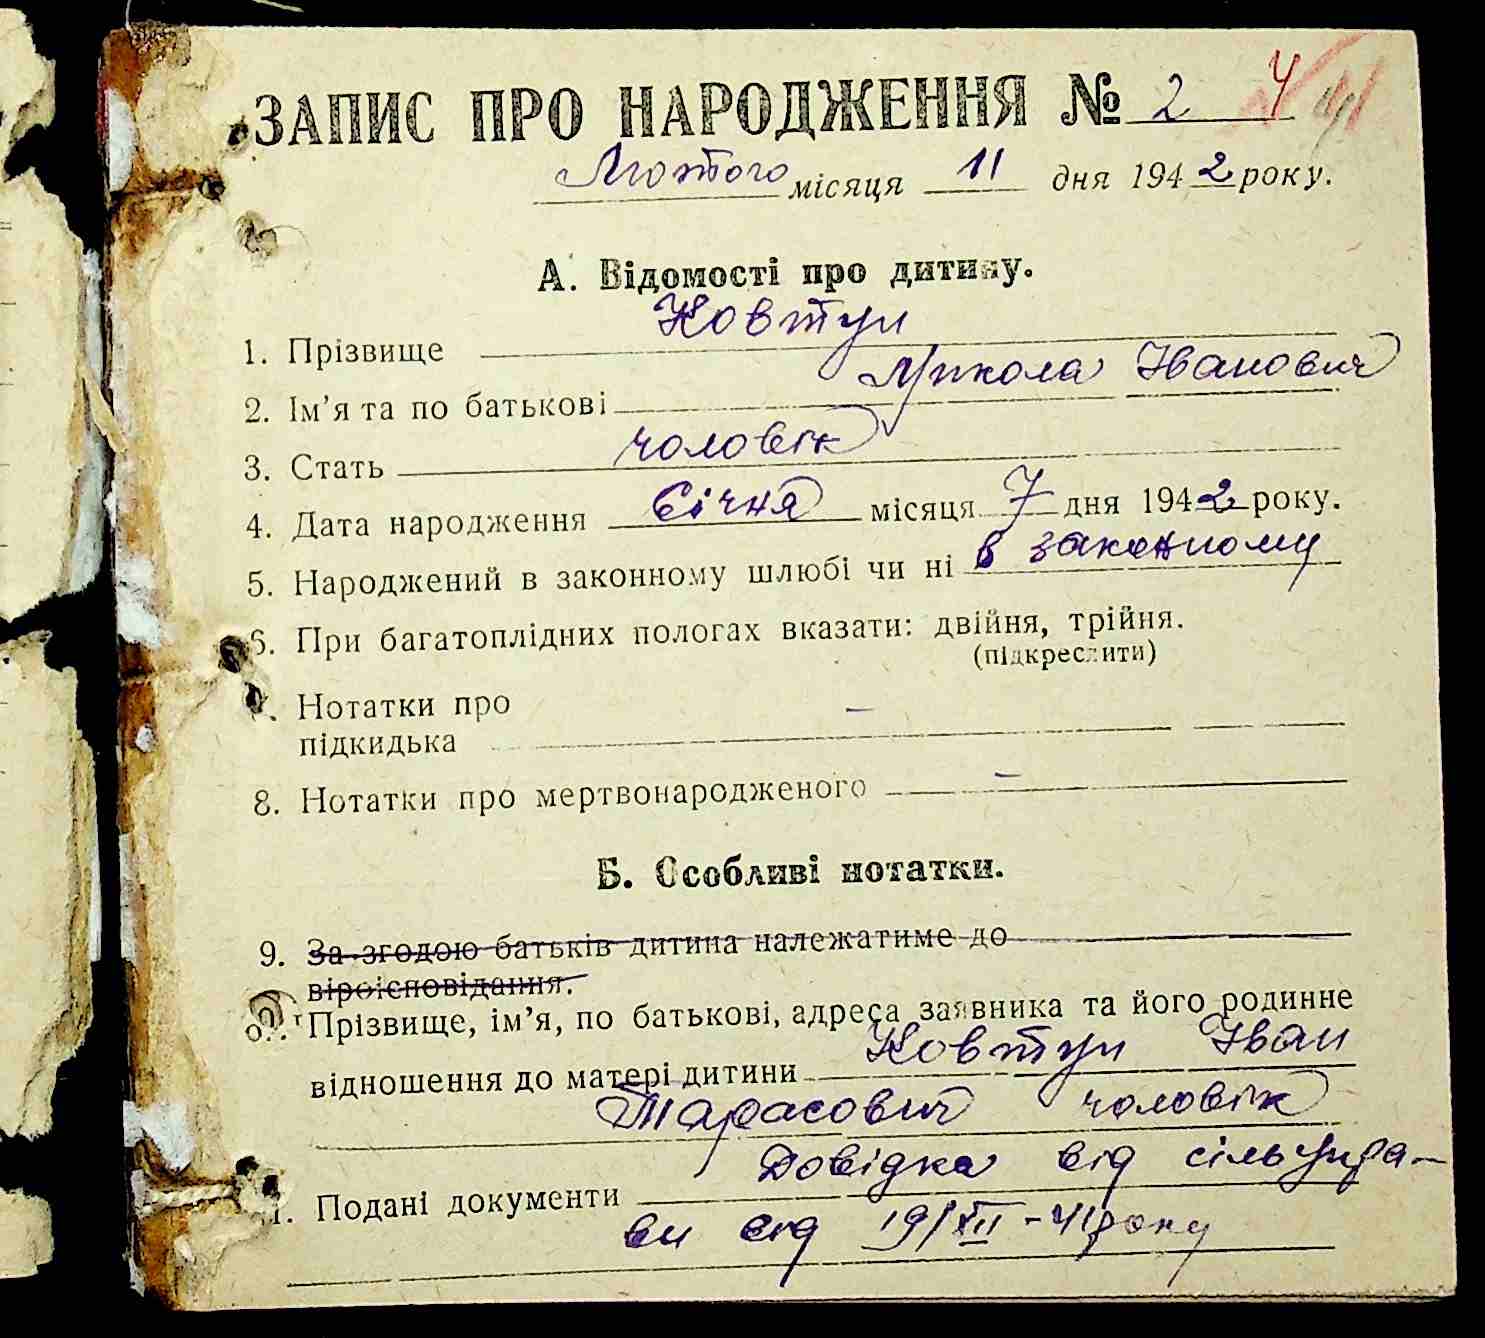 ЗАПИС ПРО НАРОДЖЕННЯ № 2 4
Лютого місяця 11 дня 1942 року.
А. Відомості про дитину.
1. Прізвище Ковтун
2. Ім'я та по батькові Микола Іванович
3. Стать чоловік
4. Дата народження Січня місяця 7 дня 1942 року.
5. Народжений в законному шлюбі чи ні в законному
6. При багатоплідних пологах вказати: двійня, трійня.
(підкреслити)
7. Нотатки про –
підкидька
8. Нотатки про мертвонародженого –
Б. Особливі нотатки.
9. За згодою батьків дитина належатиме до
віроісповідання.
Прізвище, ім'я, по батькові, адреса заявника та його родинне
відношення до матері дитини Ковтун Іван
Тарасович чоловік
1. Подані документи Довідка від сільупра-
ви від 19/XII-41 року